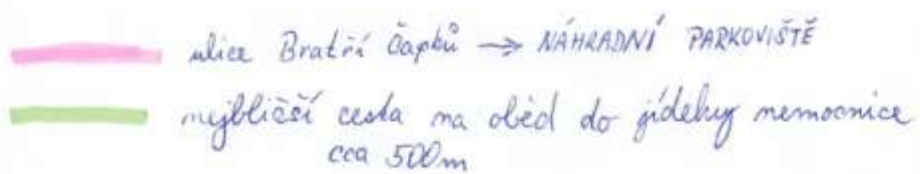 ulice Bratří Čapků → NÁHRADNÍ PARKOVIŠTĚ
nejbližší cesta na oběd do jídelny nemocnice
cca 500m